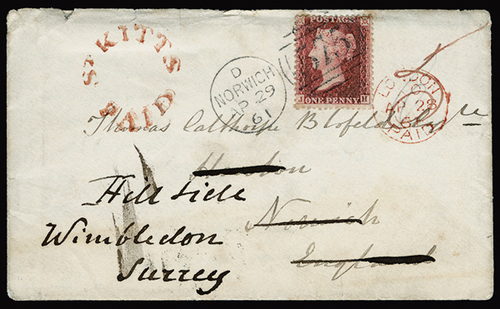 St KITTS
PAID
D
NORWICH
AP 29
61
POSTAGE
ONE PENNY
LONDON
AP 28
61
PAID
Thomas Calthorpe Blofeld Esqre
Norwich
England
Hill Side
Wimbledon
Surrey